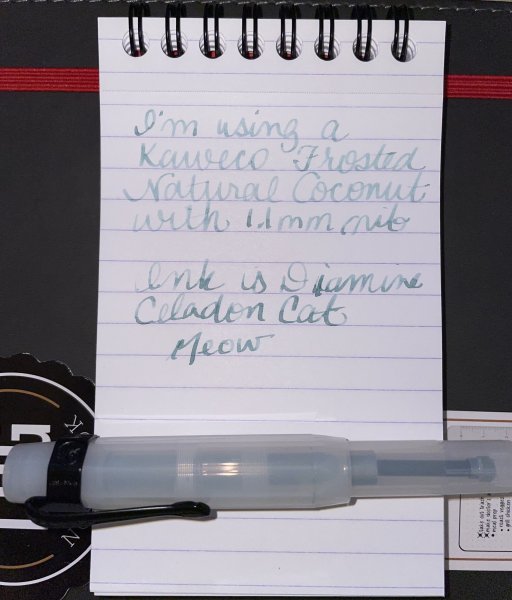 I'm using a
Kaweco Frosted
Natural Coconut
with 1.1mm nib
Ink is Diamine
Celadon Cat
Meow